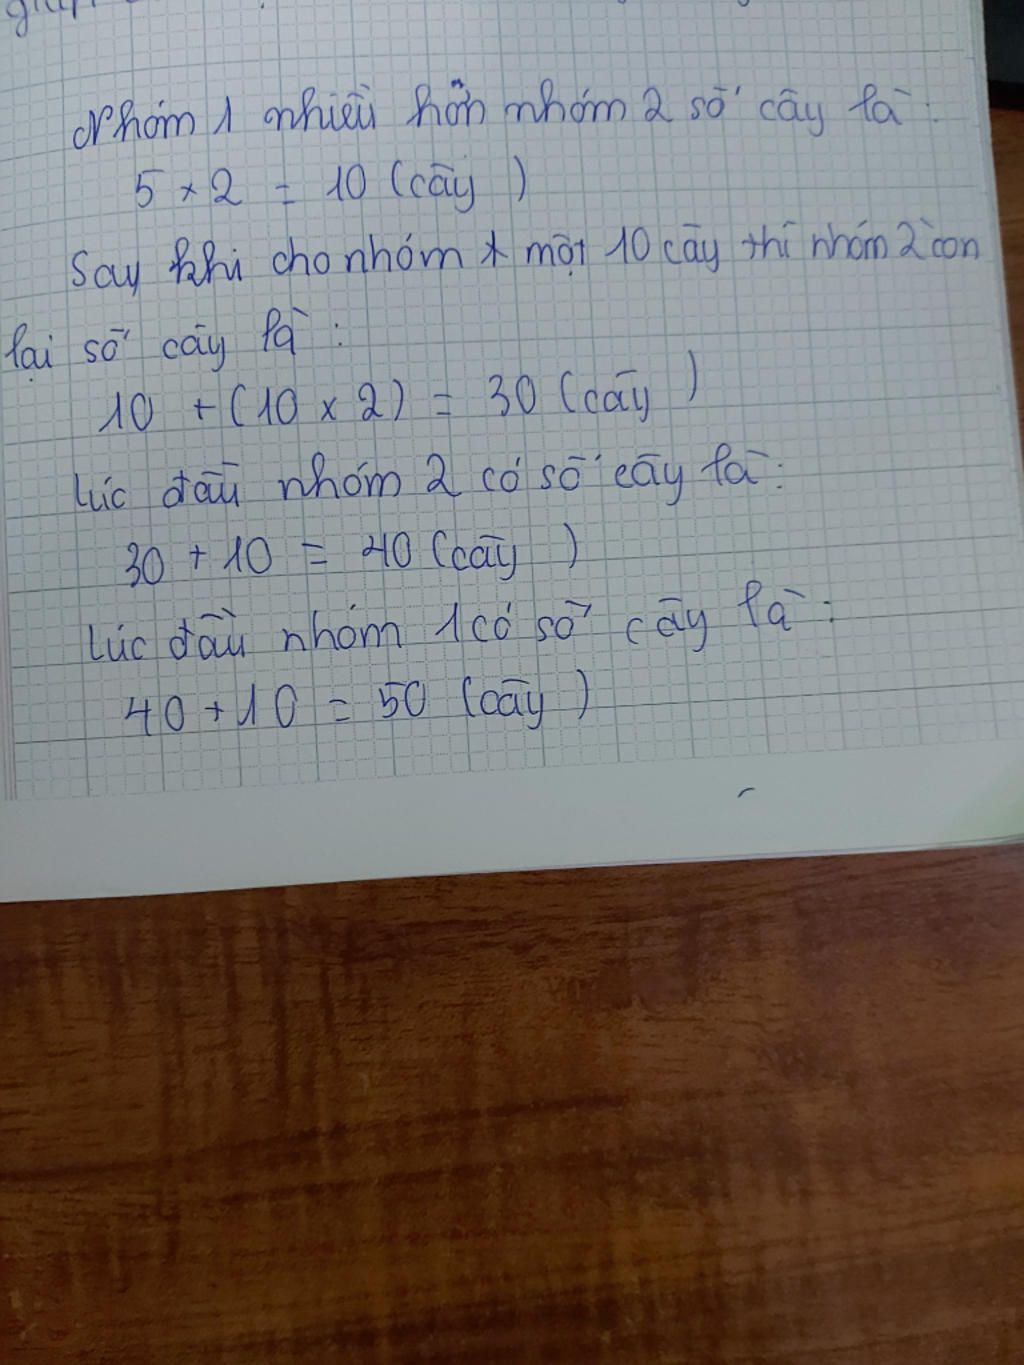 Nhóm 1 nhiều hơn nhóm 2 số cây là:
5 × 2 = 10 (cây)
Say khi cho nhóm 1 một 10 cây thì nhóm 2 còn
lại số cây là:
10 + (10 × 2) = 30 (cây)
Lúc đầu nhóm 2 có số cây là:
30 + 10 = 40 (cây)
Lúc đầu nhóm 1 có số cây là:
40 + 10 = 50 (cây)